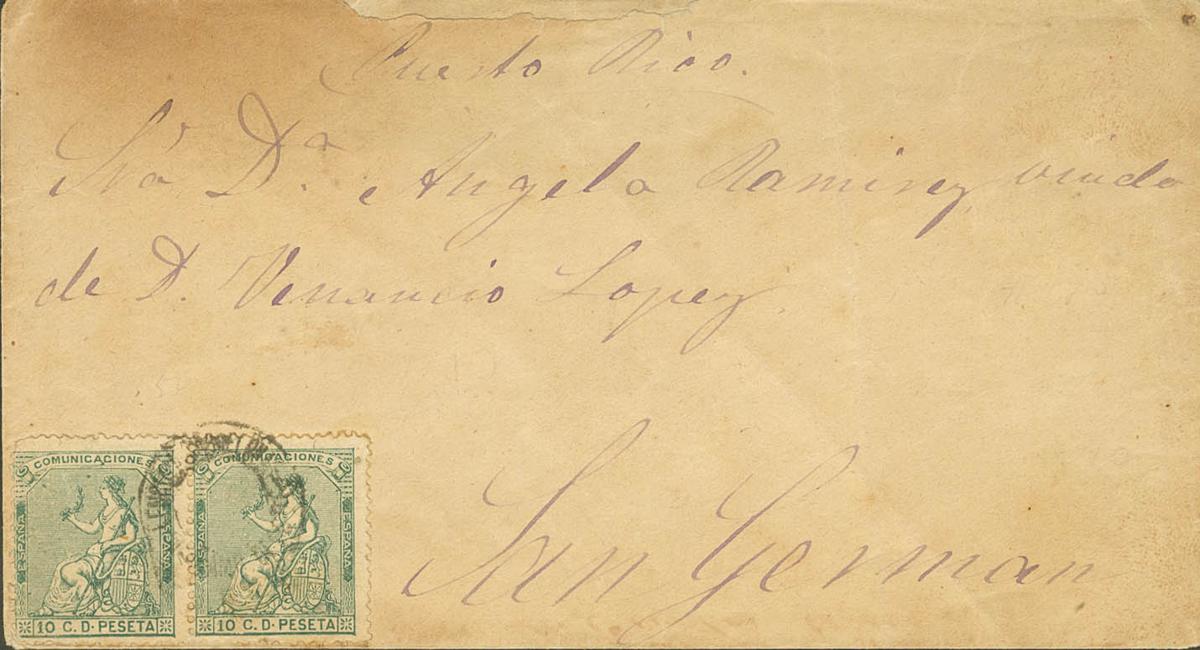 Puerto Rico.
Sra Dª. Angela Ramirez, viuda
de D. Venancio Lopez
San German
COMUNICACIONES
ESPAÑA
ESPAÑA
10 C. D. PESETA
COMUNICACIONES
ESPAÑA
ESPAÑA
10 C. D. PESETA